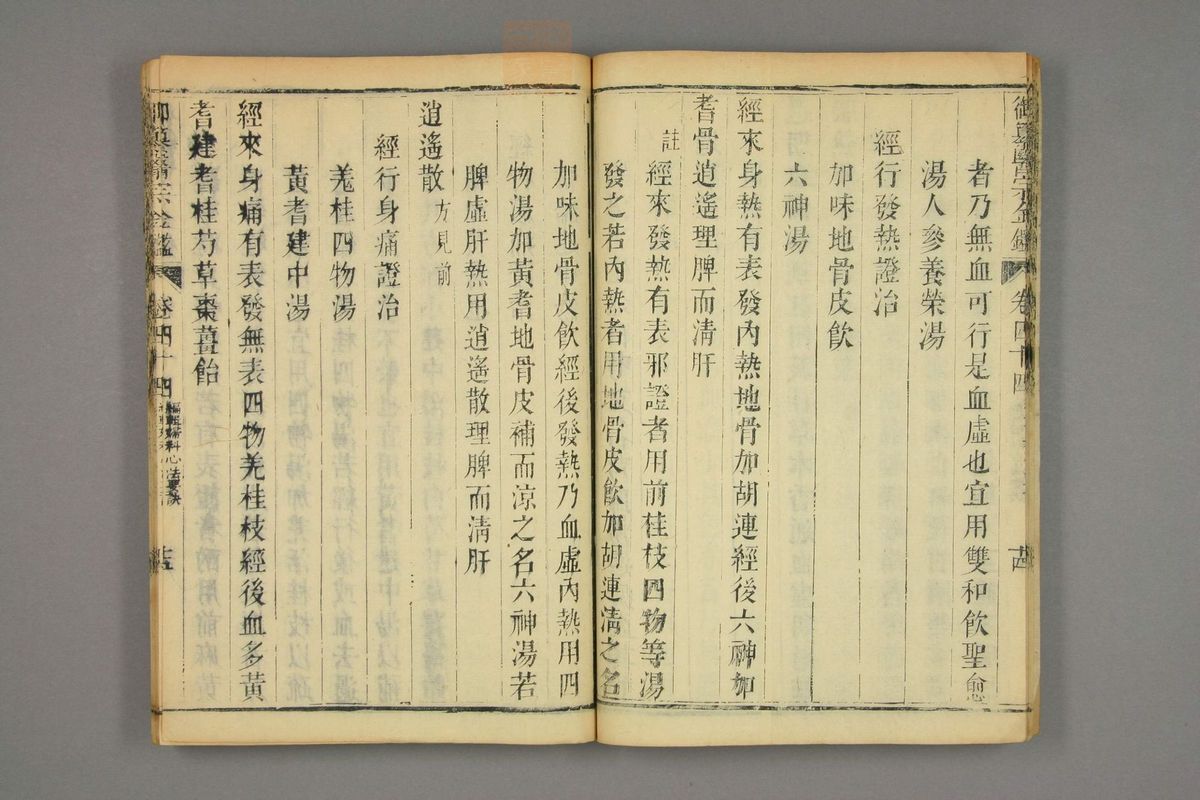 御纂醫宗金鑑 卷四十四
者乃無血可行是血虛也宜用雙和飲聖愈
湯人參養榮湯
經行發熱證治
加味地骨皮飲
六神湯
經來身熱有表發內熱地骨加胡連經後六神加
耆骨逍遙理脾而清肝
註
經來發熱有表邪證者用前桂枝四物等湯
發之若內熱者用地骨皮飲加胡連清之名
加味地骨皮飲經後發熱乃血虛內熱用四
物湯加黃耆地骨皮補而涼之名六神湯若
脾虛肝熱用逍遙散理脾而清肝
逍遙散 方見前
經行身痛證治
羌桂四物湯
黃耆建中湯
經來身痛有表發無表四物羌桂枝經後血多黃
耆建耆桂芍草棗薑飴
御纂醫宗金鑑 卷四十四 編輯婦科心法要訣